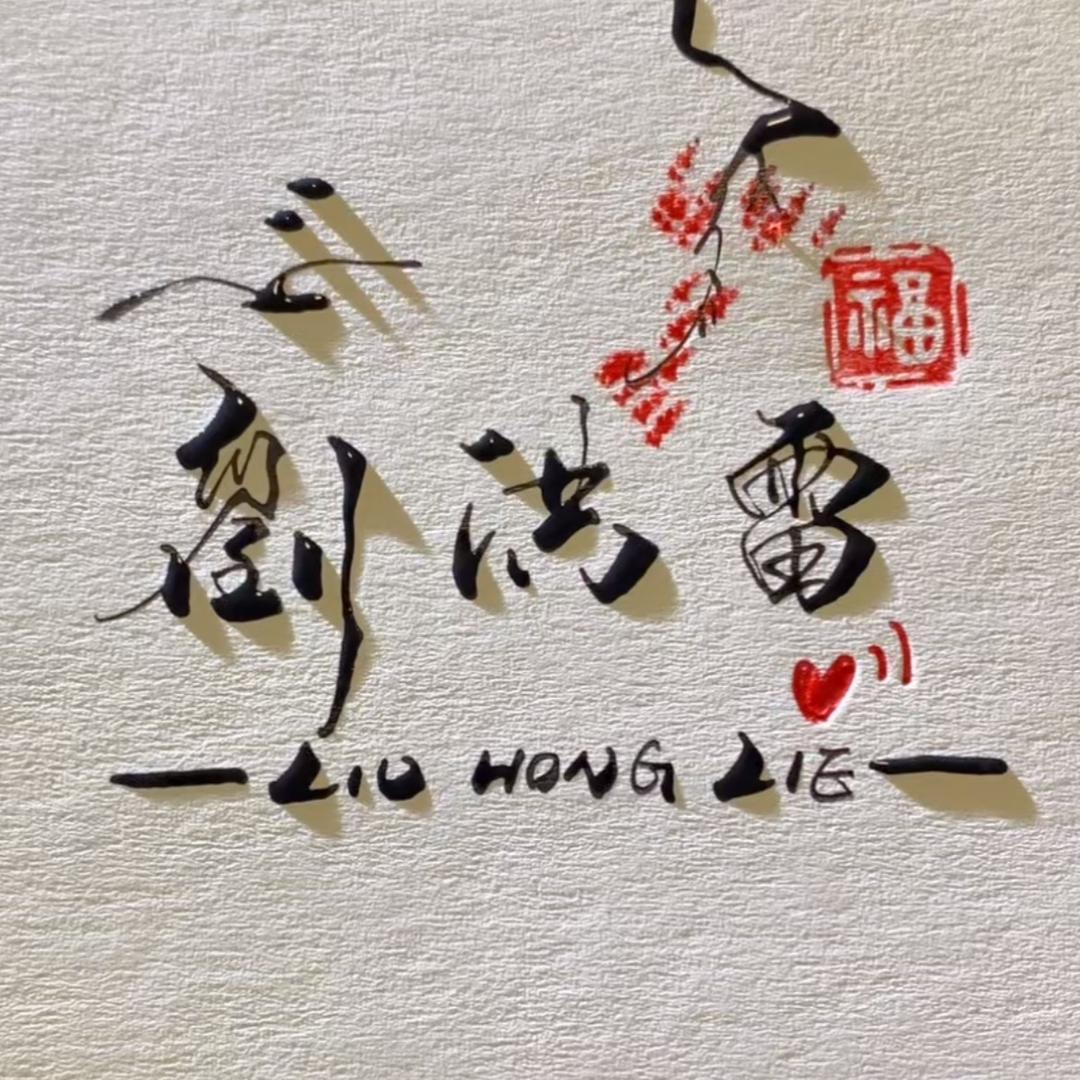 福
劉洪雷
LIU HONG LIE